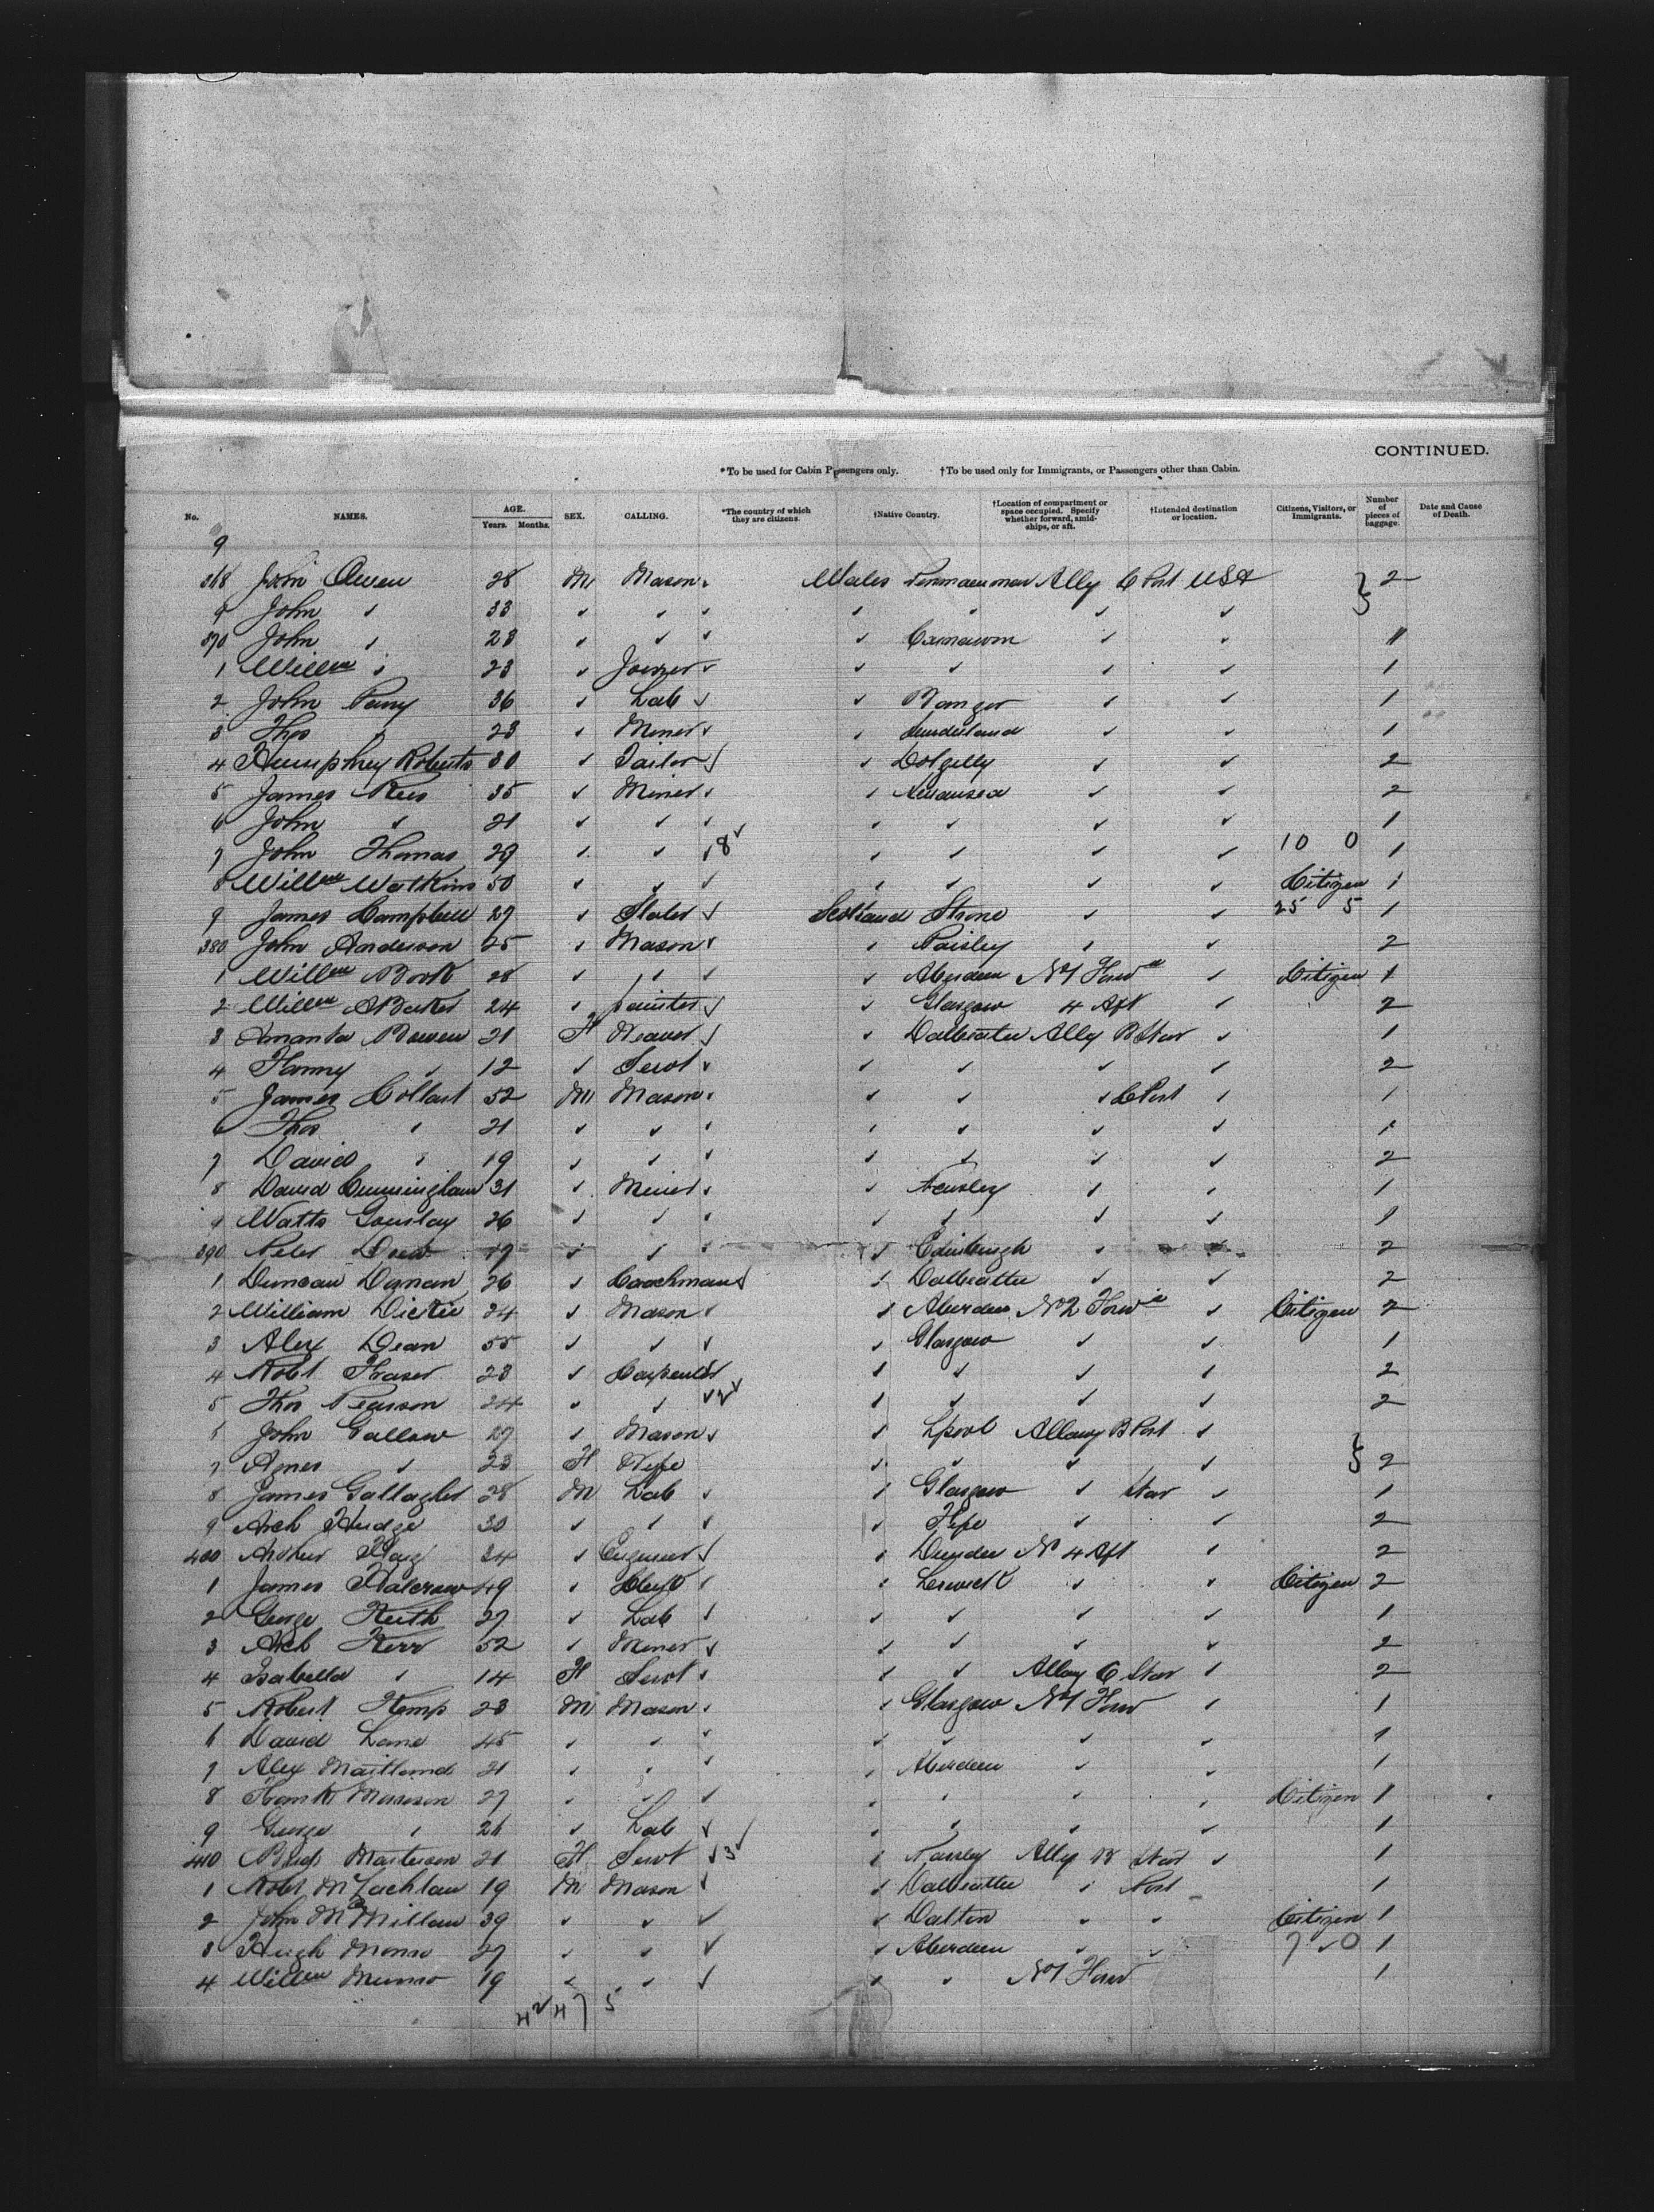 CONTINUED.
*To be used for Cabin Passengers only. †To be used only for Immigrants, or Passengers other than Cabin.
No. NAMES. AGE. Years. Months. SEX. CALLING. *The country of which they are citizens. †Native Country. †Location of compartment or space occupied. Specify whether forward, amidships, or aft. †Intended destination or location. Citizens, Visitors, or Immigrants. Number of pieces of baggage. Date and Cause of Death.
9
368 John Owen 28 M Mason Wales Ally C Port USA } 2
9 John " 33 " " " " " "
370 John " 28 " " " Carnarvon " " 11
1 Willm " 23 " Joiner " " " " 1
2 John Parry 36 " Lab " Bangor " " 1
3 Thos " 23 " Miner " Sunderland " " 1
4 Humphrey Roberts 30 " Tailor " Dolgelly " " 2
5 James Rees 35 " Miner " Swansea " " 2
6 John " 21 " " " " " " 1
7 John Thomas 29 " " 8 " " " " 10 0 1
8 Willm Watkins 50 " " " " " " Citizen 1
9 James Campbell 27 " Slater Scotland Strone " " 25 5 1
380 John Anderson 25 " Mason " Paisley " " 2
1 Willm Book 28 " " " Aberdeen No 1 Forwd " Citizen 1
2 Willm Barker 24 " painter " Glasgow 4 Aft " 2
3 Amanta Bowen 21 F Weaver " Dalbeatie Ally B Star " 1
4 Fanny " 12 " Servt " " " " 2
5 James Collart 52 M Mason " " " C Port " 1
6 Thos " 21 " " " " " " 1
7 David " 19 " " " " " " 2
8 David Cunningham 31 " Miner " " " 1
9 Watts Gourlay 26 " " " " " " 1
390 Peter Drew 47 " " " Edinburgh " " 2
1 Duncan 26 " Coachman " Dalbeattie " " 2
2 William Dickie 24 " Mason " Aberdeen No 2 Forwd " Citizen 2
3 Alex Dean 55 " " " Glasgow " " 1
4 Robt Fraser 23 " Carpenter " " " " 2
5 Thos Pearson 24 " " 2 " " " " 2
John Gallow 27 " Mason " Lpool Allawy B Port "
7 Agnes " 23 F Wife " " " " } 2
8 James Gallagher 28 M Lab " Glasgow " Star " 1
9 Arch Hudge 30 " " " Fife " " 2
400 Arthur Haig 34 " Engineer " Dundee No 4 Aft " 2
1 James Halcrow 49 " " Lerwick " " Citizen 2
2 George Keith 27 " Lab " " " " 1
3 Arch Kerr 52 " Miner " " " " 2
4 Isabella " 14 F Servt " " Allawy C Star " 2
5 Robert Kemp 23 M Mason " Glasgow No 1 Forw " 1
6 David Lane 45 " " " " " " 1
7 Alex Maitland 21 " " " Aberdeen " " 1
8 Frank Morrison 27 " " " " " " Citizen 1
9 George " 26 " Lab " " " " 1
410 Masterson 21 F Servt 3 " Ally B Star " 1
1 Robt McLachlan 19 M Mason " Dalbeattie " Port 1
2 John McMillan 39 " " " Dalton " " Citizen 1
3 Hugh Monro 27 " " " Aberdeen " " 7 0 1
4 Willm Munro 19 " " " " No 1 Forw 1
42 47 5